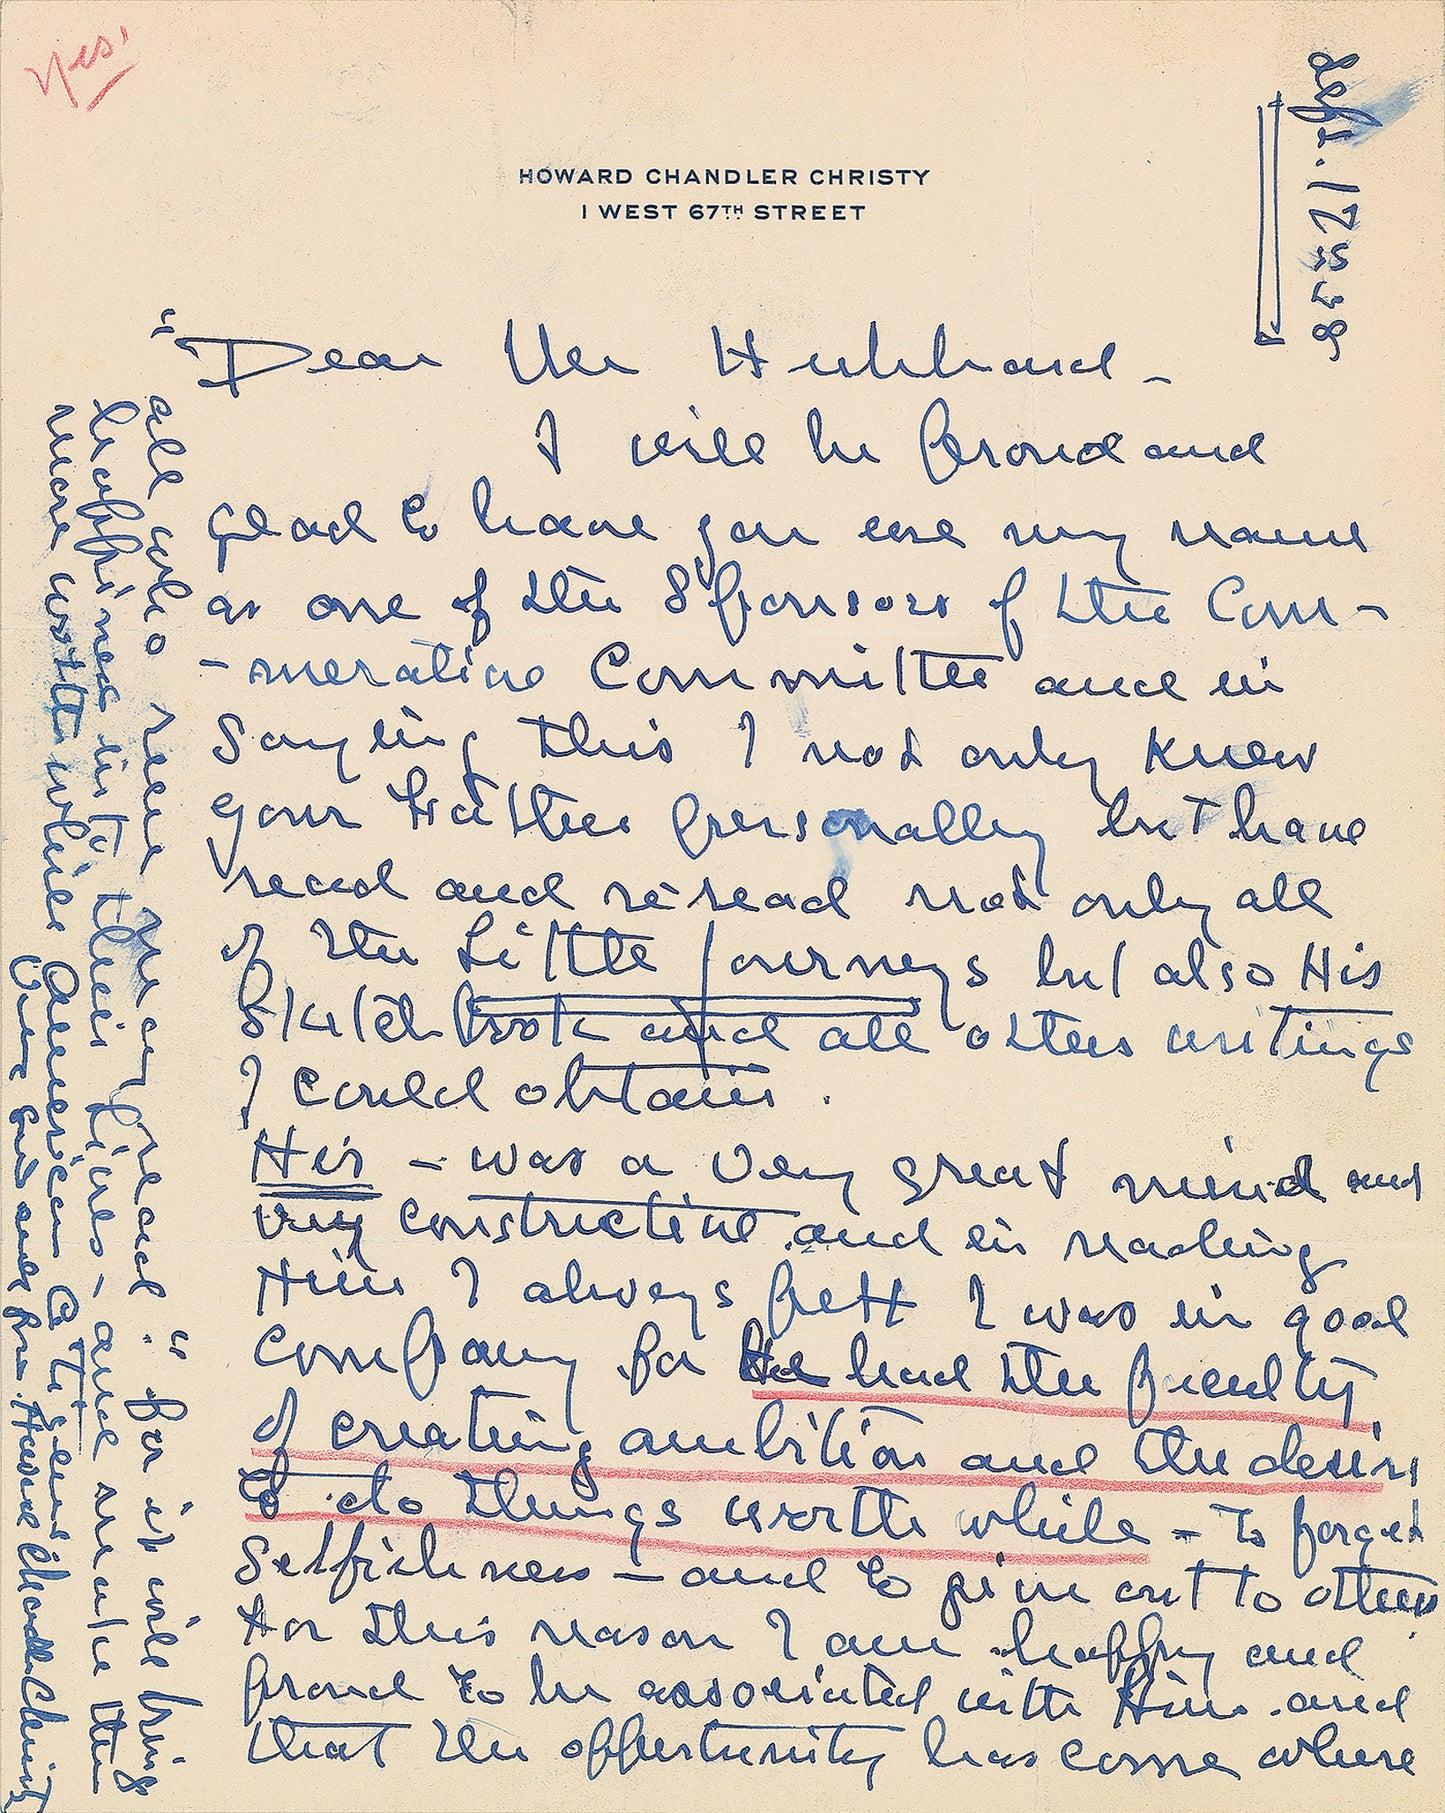 Yes!
Sept. 17 - 38
HOWARD CHANDLER CHRISTY
1 WEST 67TH STREET
"Dear Mr Hubbard -
I will be proud and
glad to have you use my name
as one of the Sponsors of the Com-
-merative Committee and in
saying this I not only knew
your Father personally but have
read and re-read not only all
of the Little Journeys but also His
Sketch Book and all other writings
I could obtain.
His - was a very great mind and
very constructive and in reading
Him I always felt I was in good
company for He had the faculty
of creating ambition and the desire
to do things worth while - to forget
selfishness - and to give out to others
For this reason I am happy and
proud to be associated with Him and
that the opportunity has come where
all who run may read." for it will bring
happiness into their lives - and make them
more worth while American Citizens
Very Sincerely Howard Chandler Christy